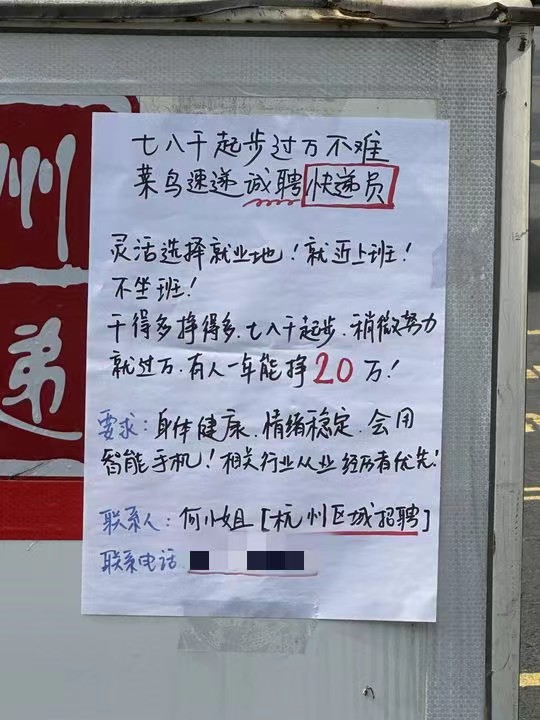 七八千起步过万不难
菜鸟速递诚聘快递员
灵活选择就业地！就近上班！
不坐班！
干得多挣得多.七八千起步.稍微努力
就过万.有人一年能挣20万！
要求：身体健康.情绪稳定.会用
智能手机！相关行业从业经历者优先！
联系人：何小姐[杭州区域招聘]
联系电话
州
递